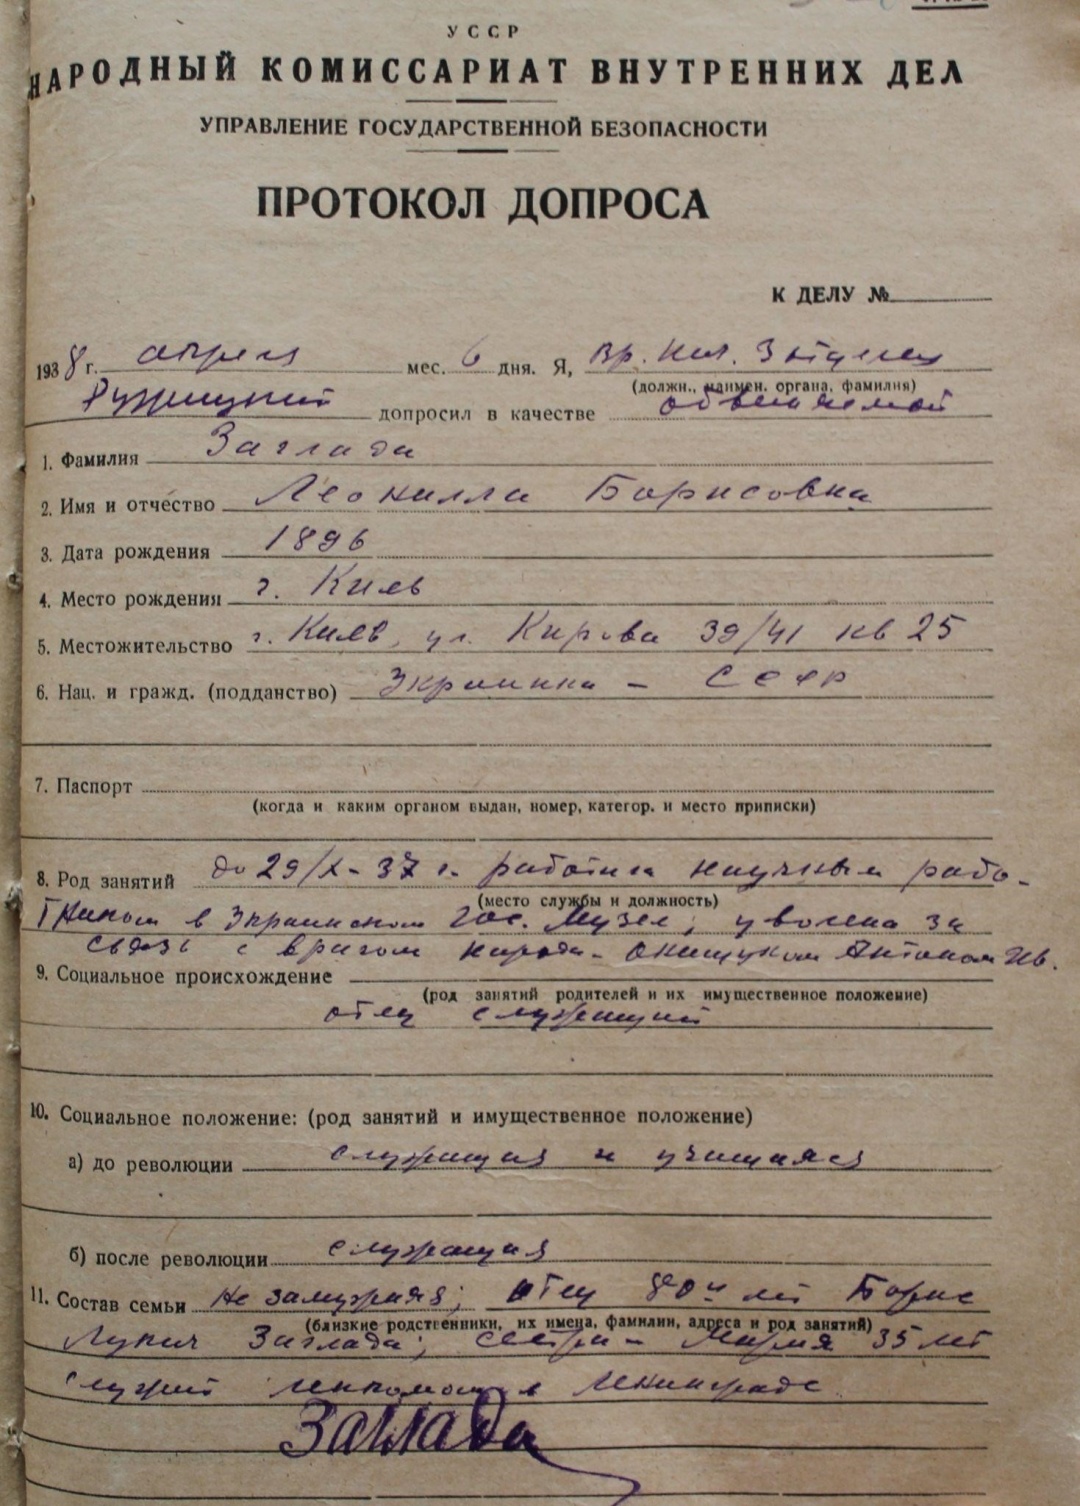 УССР
НАРОДНЫЙ КОМИССАРИАТ ВНУТРЕННИХ ДЕЛ
УПРАВЛЕНИЕ ГОСУДАРСТВЕННОЙ БЕЗОПАСНОСТИ
ПРОТОКОЛ ДОПРОСА
К ДЕЛУ №
1938 г. апреля мес. 6 дня. Я, Вр. нач. 3 отделен
(должн., наимен. органа, фамилия)
Ружицкий допросил в качестве обвиняемой
1. Фамилия Заглада
2. Имя и отчество Леонилла Борисовна
3. Дата рождения 1896
4. Место рождения г. Киев
5. Местожительство г. Киев, ул. Кирова 39/41 кв 25
6. Нац. и гражд. (подданство) Украинка – СССР
7. Паспорт
(когда и каким органом выдан, номер, категор. и место приписки)
8. Род занятий до 29/X-37 г. работала научным рабо-
(место службы и должность)
тником в Украинском Гос. Музее; уволена за
связь с врагом народа – Онищуком Антоном Ив.
9. Социальное происхождение
(род занятий родителей и их имущественное положение)
отец служащий
10. Социальное положение: (род занятий и имущественное положение)
а) до революции служащая и учащаяся
б) после революции служащая
11. Состав семьи Не замужняя; отец 80и лет Борис
(близкие родственники, их имена, фамилии, адреса и род занятий)
Лукич Заглада; сестра – Мария 35 лет
служит в Ленинграде
Заглада